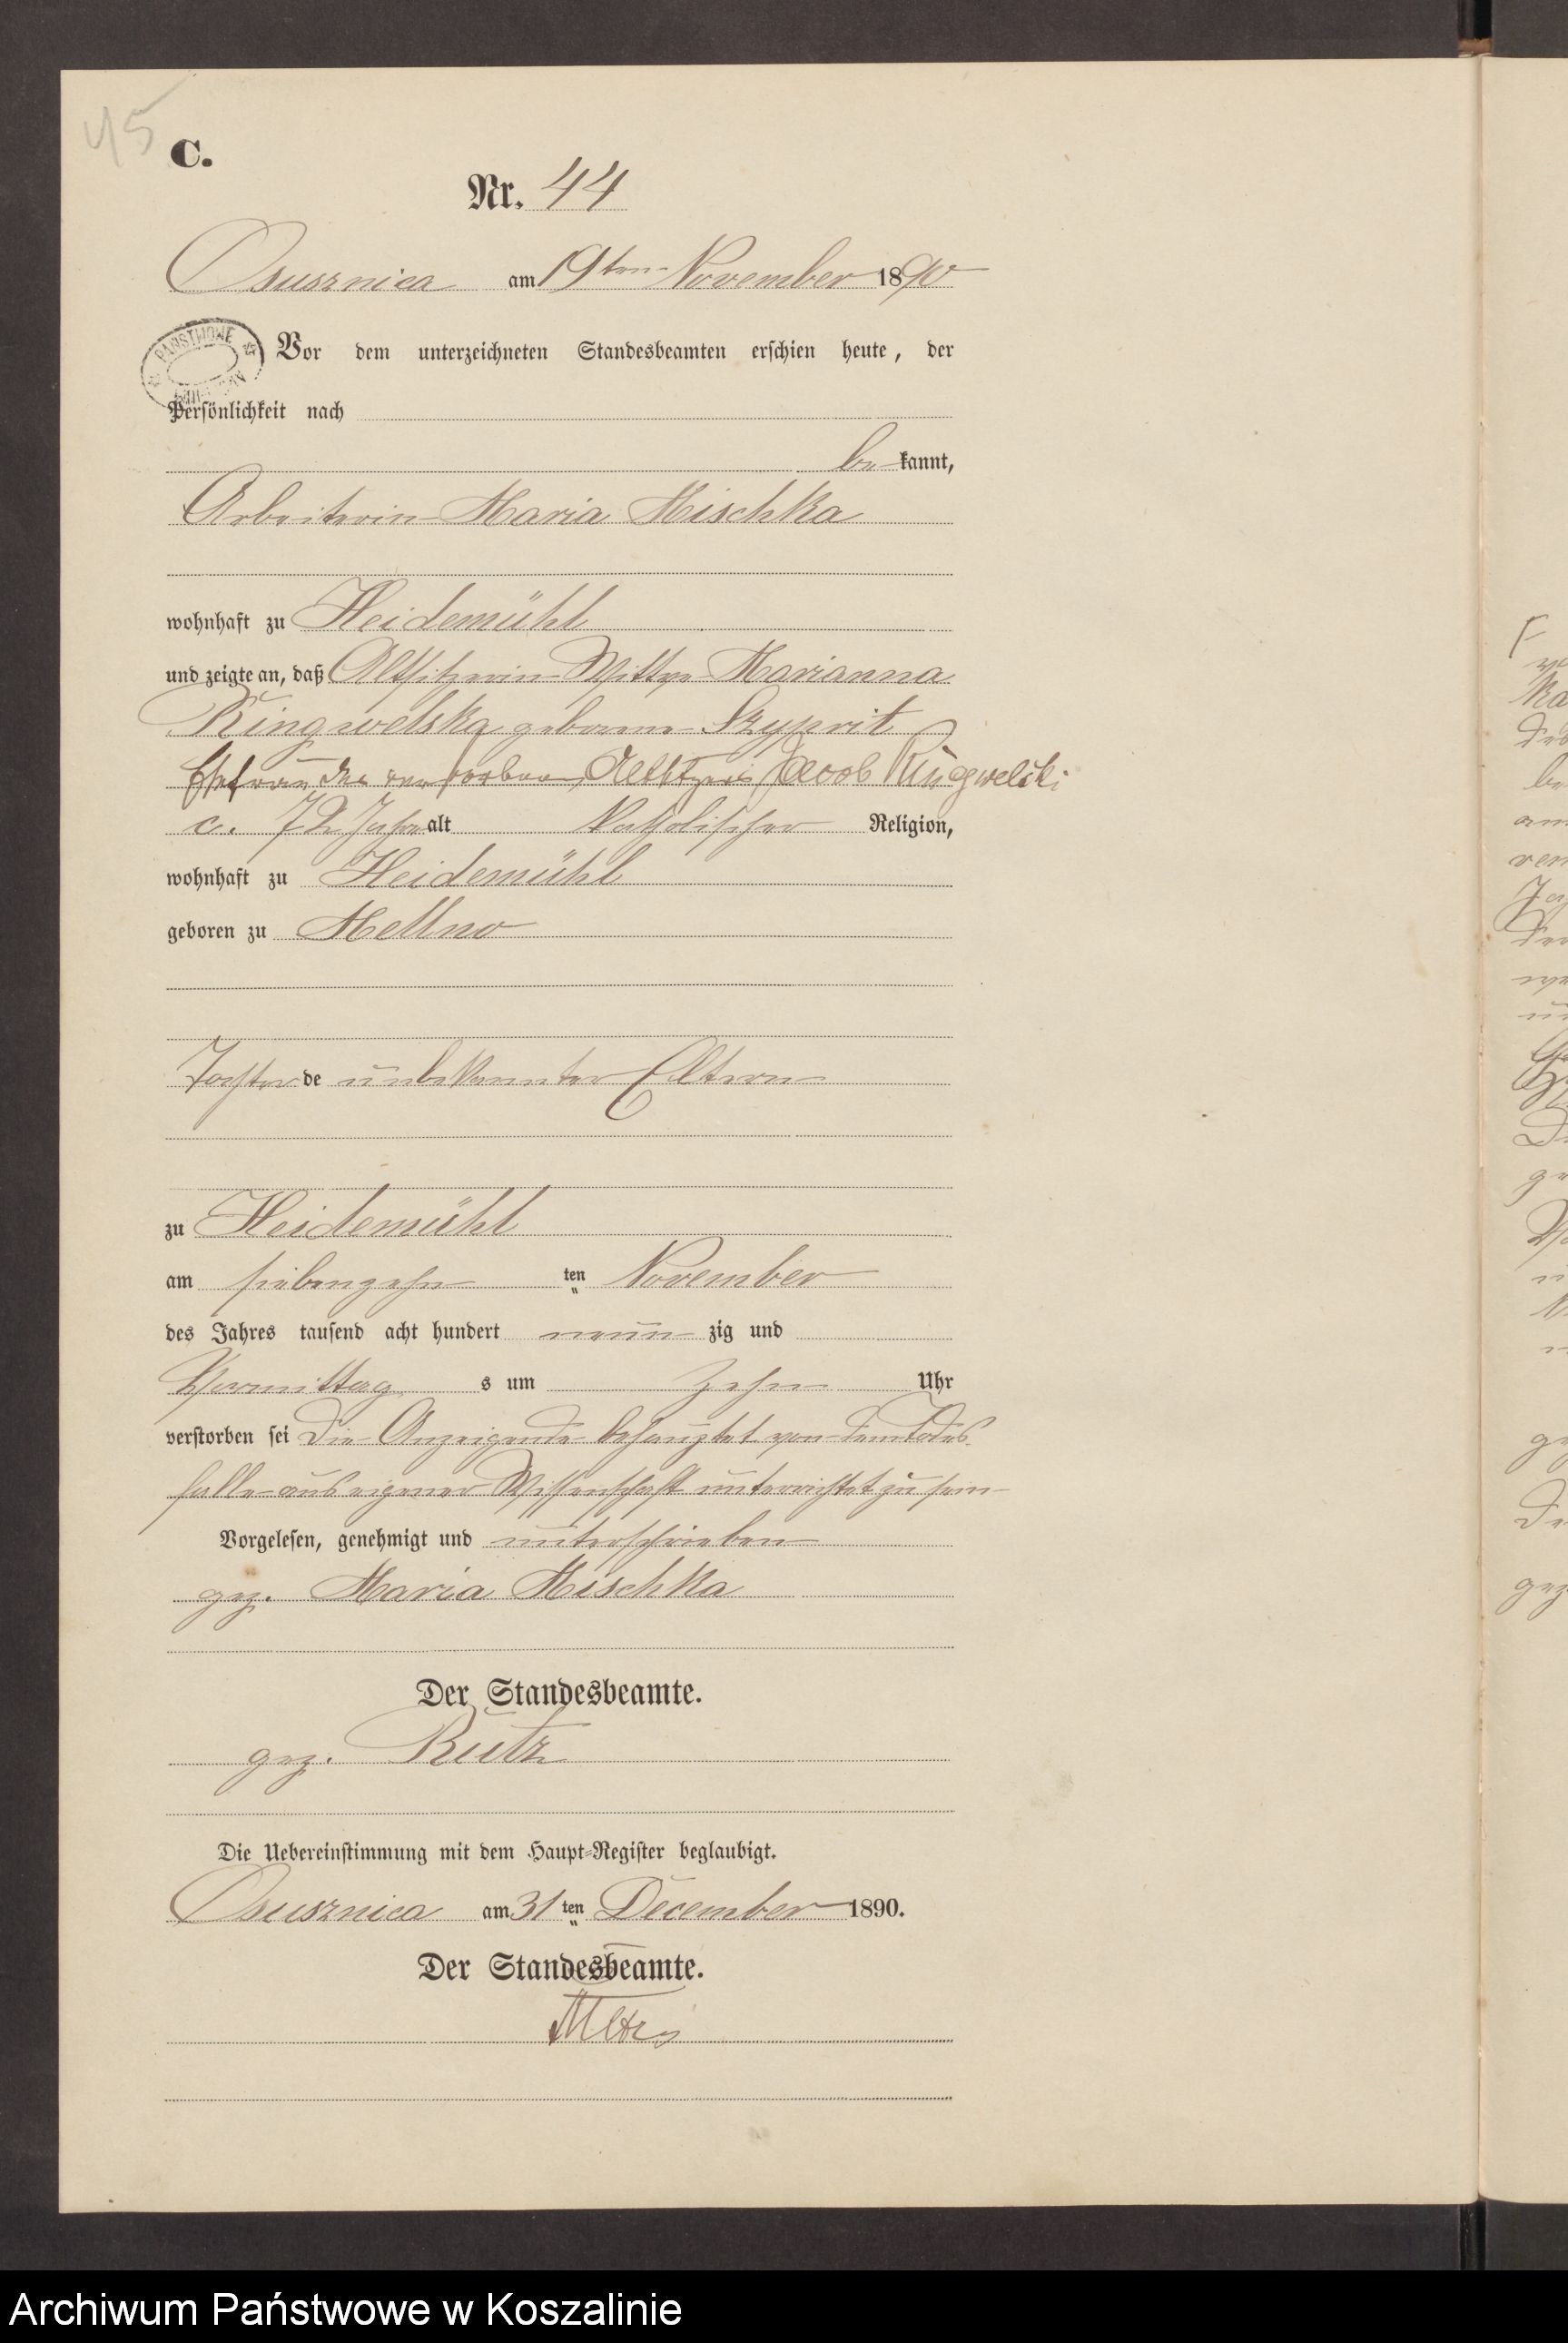 45
C.
Nr. 44
Osusznica am 19ten November 1890
PAŃSTWOWE
Vor dem unterzeichneten Standesbeamten erschien heute, der
Persönlichkeit nach
be kannt,
Arbeiterin Maria Mischka
wohnhaft zu Heidemühl
und zeigte an, daß Altsitzerin Wittwe Marianna
Ringwelska geborene Szyprit
Ehefrau des verstorbenen Altsitzers Jacob Ringwelski
c. 72 Jahre alt katholischer Religion,
wohnhaft zu Heidemühl
geboren zu Mellno
Tochter de unbekannter Eltern
zu Heidemühl
am siebenzehn ten November
des Jahres tausend acht hundert neun zig und
Vormittag s um zehn Uhr
verstorben sei Die Anzeigende behauptet von dem Todes
falle aus eigener Wissenschaft unterrichtet zu sein
Vorgelesen, genehmigt und unterschrieben
gez. Maria Mischka
Der Standesbeamte.
gez. Rutz
Die Uebereinstimmung mit dem Haupt-Register beglaubigt.
Osusznica am 31 ten December 1890.
Der Standesbeamte.
Archiwum Państwowe w Koszalinie